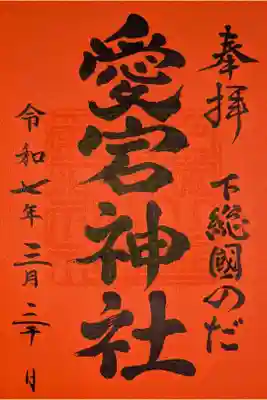 奉拝
下総國のだ
愛宕神社
令和七年三月二十日